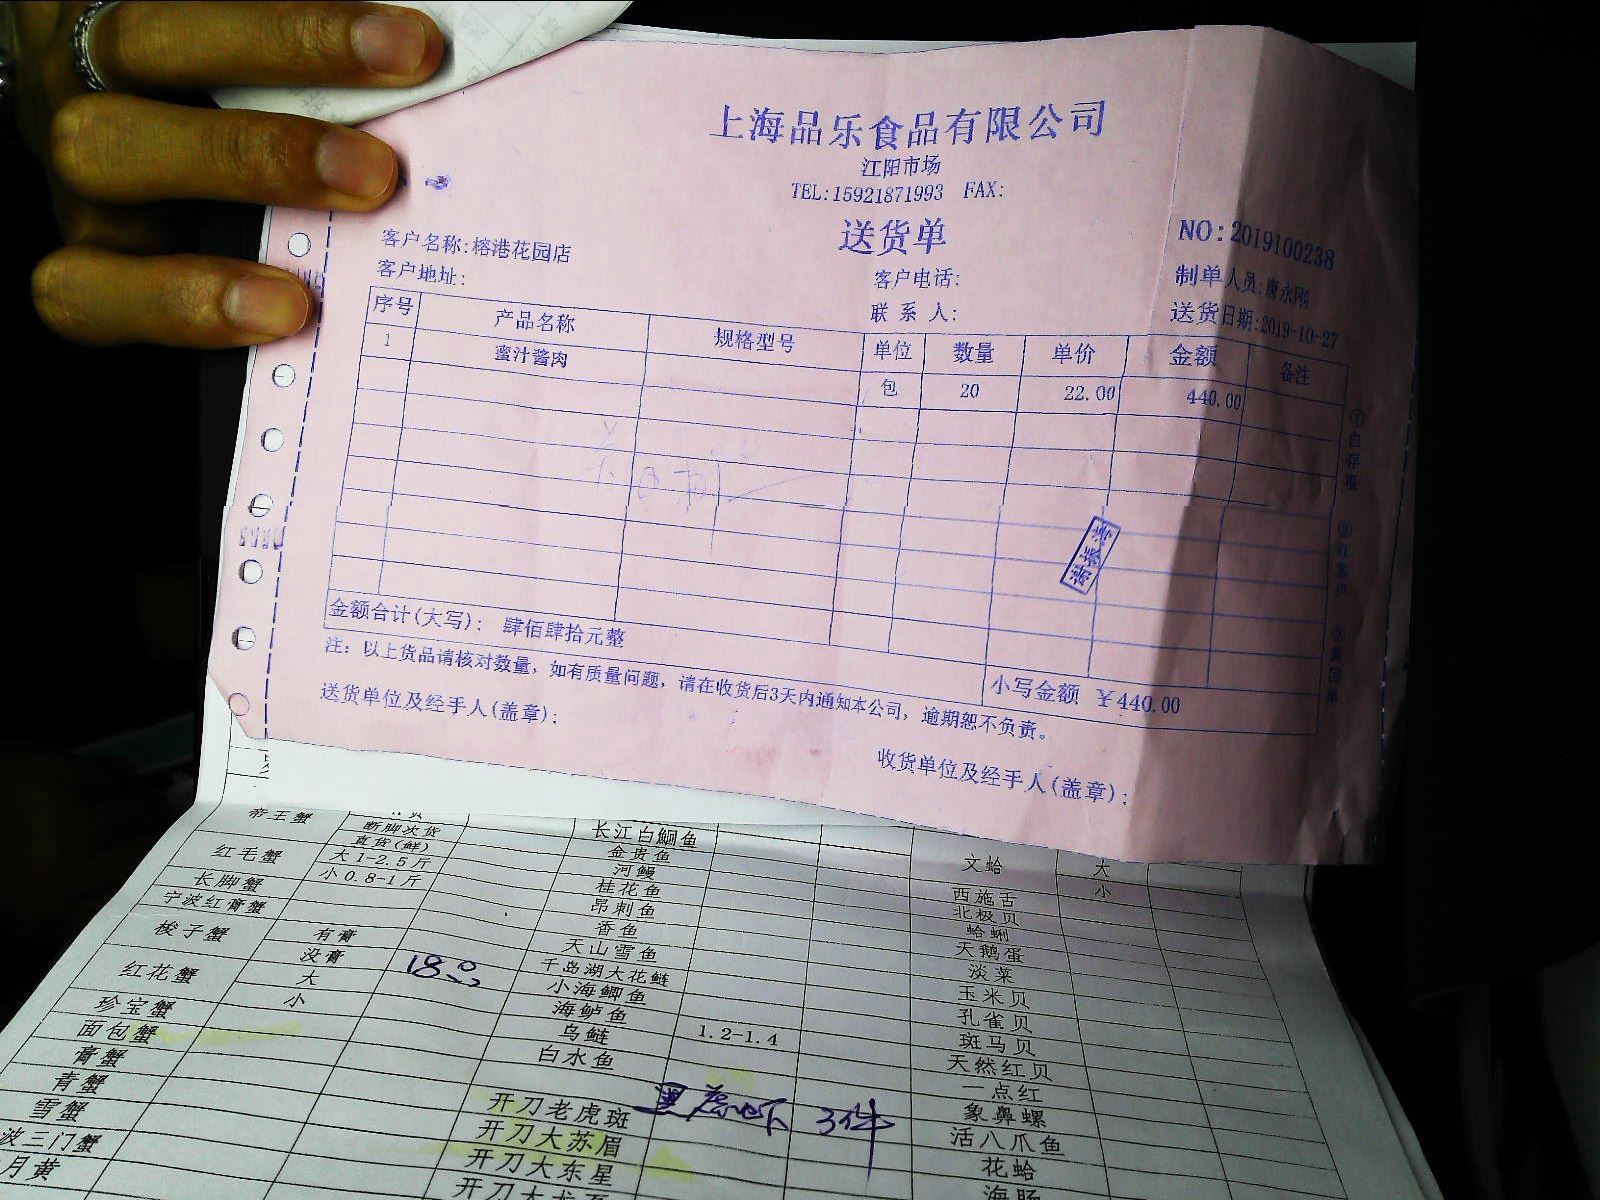 上海品乐食品有限公司
江阳市场
TEL:15921871993 FAX:
送货单
NO:2019100238
客户名称:榕港花园店
客户电话:
制单人员:唐永刚
客户地址:
联系人:
送货日期:2019-10-27
序号 产品名称 规格型号 单位 数量 单价 金额 备注
1 蜜汁酱肉 包 20 22.00 440.00
①白存根 ②红客户 ③黄回单
金额合计(大写): 肆佰肆拾元整
小写金额 ￥440.00
注: 以上货品请核对数量, 如有质量问题, 请在收货后3天内通知本公司, 逾期恕不负责。
送货单位及经手人(盖章):
收货单位及经手人(盖章):
帝王蟹 断脚次货 长江白鮰鱼
直货(鲜) 金贵鱼 文蛤 大
红毛蟹 大1-2.5斤 河鳗 小
小0.8-1斤 桂花鱼 西施舌
长脚蟹 昂刺鱼 北极贝
宁波红膏蟹 香鱼 蛤蜊
梭子蟹 有膏 天山雪鱼 天鹅蛋
没膏 千岛湖大花鲢 淡菜
红花蟹 大 小海鲫鱼 玉米贝
小 海鲈鱼 孔雀贝
珍宝蟹 鸟鲢 1.2-1.4 斑马贝
面包蟹 白水鱼 天然红贝
膏蟹 一点红
青蟹 开刀老虎斑 3件 象鼻螺
雪蟹 开刀大苏眉 活八爪鱼
波三门蟹 开刀大东星 花蛤
月黄 海肠